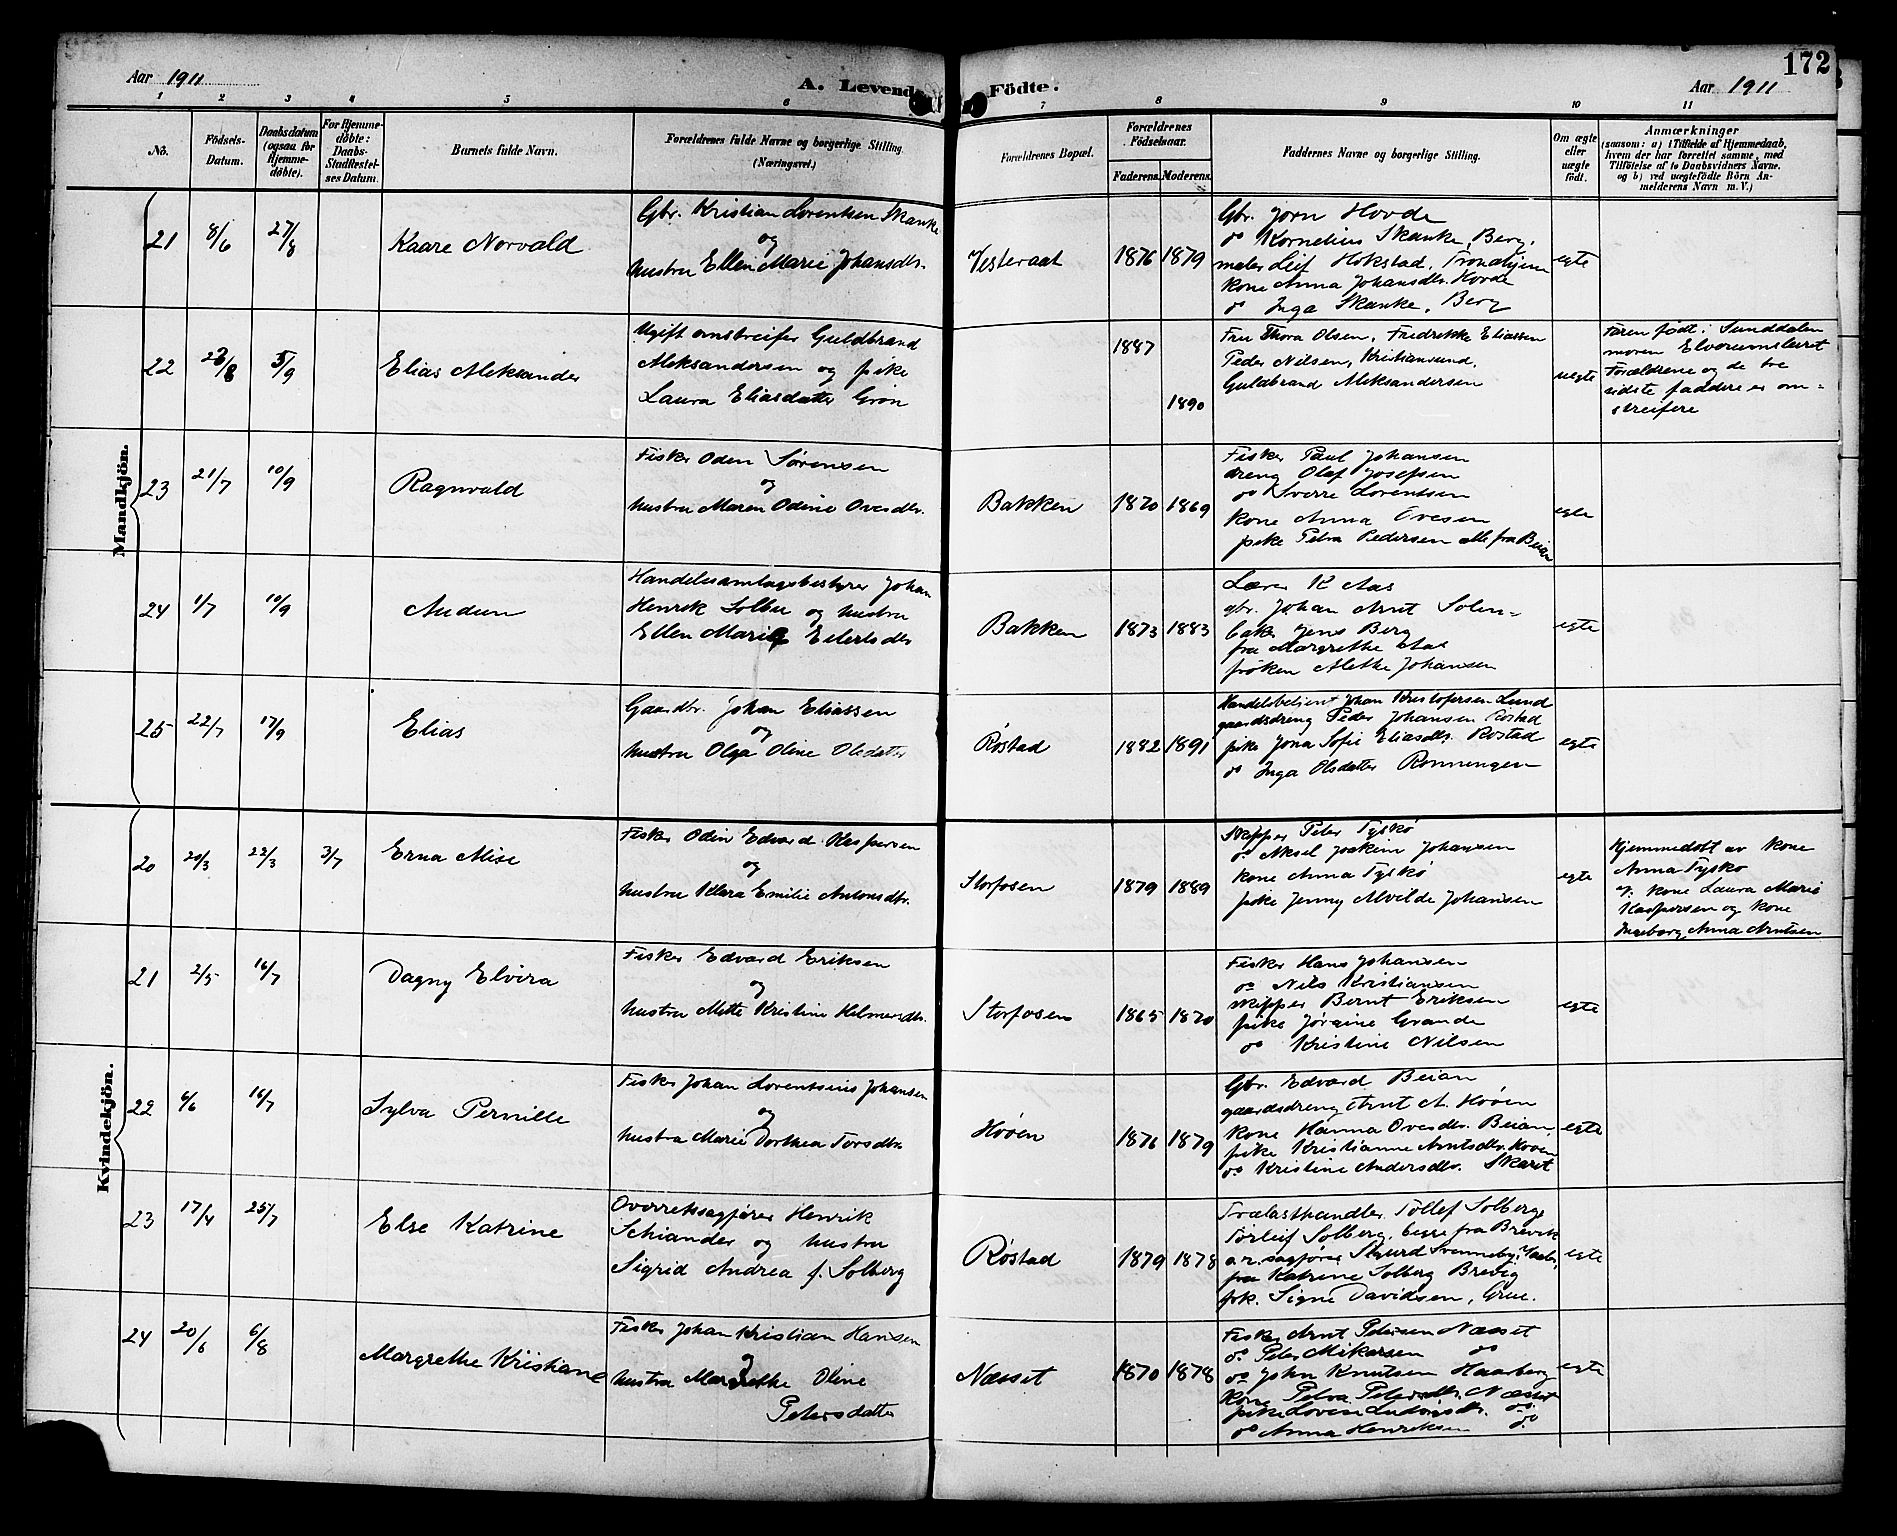 172
Aar 1911
A. Levende Födte.
Aar 1911
1 2 3 4 5 6 7 8 9 10 11
No.
Födsels-
Datum.
Daabsdatum
(ogsaa for
Hjemme-
döbte).
For Hjemme-
döbte:
Daabs-
Stadfæstel-
ses Datum.
Barnets fulde Navn.
Forældrenes fulde Navne og borgerlige Stilling.
(Næringsvei.)
Forældrenes Bopæl.
Forældrenes
Födselsaar.
Faderens. Moderens.
Faddernes Navne og borgerlige Stilling.
Om ægte
eller
uægte
födt.
Anmærkninger
(saasom: a) i Tilfælde af Hjemmedaab,
hvem der har forrettet samme, med
Tilföielse af to Daabsvidners Navne,
og b) ved uægtefödte Börn An-
melderens Navn m. V.)
Mandkjön.
21 8/6 27/8
Kaare Norvald
Gbr. Kristian Lorentsen Skanke
og
hustru Ellen Marie Johansdtr.
Vesteraat
1876 1879
Gbr. Jorn Hovde
do Kornelius Skanke, Berg.
maler Leif Hokstad, Trondhjem
kone Anna Johansdtr. Hovde
do Inga Skanke, Berg
egte
22 23/8 5/9
Elias Aleksander
Ugift omstreifer Guldbrand
Aleksandersen og pike
Laura Eliasdatter Grön
1887
1890
Fru Thora Olsen, Fredrikke Eliassen
Peder Nilsen, Kristiansund,
Guldbrand Aleksandersen
uegte
Faren født i Sunddalen
moren Elverumsleiret
Forældrene og de tre
sidste faddere er om-
streifere
23 21/7 10/9
Ragnvald
Fisker Oden Sørensen
og
hustru Maren Odine Ovesdtr.
Bakken
1870 1869
Fisker Paul Johansen
dreng Olaf Josefsen
do Sverre Lorentsen
kone Anna Ovesen
pike Petra Pedersen alle fra Beian
egte
24 1/7 10/9
Audun
Handelssamlagsbestyrer Johan
Henrik Solbu og hustru
Ellen Marie Eilertsdtr
Bakken
1873 1883
Lærer K Aas
gbr. Johan Arnt Solem
baker Jens Berg
fru Margrethe Aas
frøken Alethe Johansen
egte
25 22/7 17/9
Elias
Gaardbr. Johan Eliassen
og
hustru Olga Oline Olsdatter
Røstad
1882 1891
Handelsbetjent Johan Kristofersen Lund
gaardsdreng Peder Johansen Røstad
pike Jona Sofie Eliasdtr. Røstad
do Inga Olsdatter Rønningen
egte
Kvindekjön.
20 20/3 22/3 3/7
Erna Alise
Fisker Odin Edvard Kaspersen
og
hustru Klara Emilie Antonsdtr.
Storfosen
1879 1889
Skipper Peter Tyskø
do Aksel Joakim Johansen
kone Anna Tyskø
pike Jenny Alvilde Johansen
egte
Hjemmedøbt av kone
Anna Tyskø
v. kone Laura Marie
Kaspersen og kone
Ingeborg Anna Arntsen
21 2/5 16/7
Dagny Elvira
Fisker Edvard Eriksen
og
hustru Mette Kristine Helmersdtr.
Storfosen
1865 1870
Fisker Hans Johansen
do Nils Kristiansen
skipper Bernt Eriksen
pike Jørgine Grande
do Kristine Nilsen
egte
22 4/6 16/7
Sylva Pernille
Fisker Johan Lorentsius Johansen
og
hustru Marie Dorthea Torsdtr.
Høøen
1876 1879
Gbr. Edvard Beian
gaardsdreng Arnt A. Høøen
kone Hanna Ovesdtr. Beian,
pike Kristianne Arntsdtr. Høøen
do Kristine Andersdtr. Skaret
egte
23 17/4 25/7
Else Katrine
Overretssagfører Henrik
Schiander og hustru
Sigrid Andrea f. Solberg
Røstad
1879 1878
Trælasthandler Tollef Solberg
Torleif Solberg, begge fra Brevik
o.r. sagfører Sigurd Svenneby,
fru Katrine Solberg Brevig
frk. Signe Davidsen, Grue.
egte
24 20/6 6/8
Margrethe Kristiane
Fisker Johan Kristian Hansen
og
hustru Margrethe Oline
Petersdatter
Næsset
1870 1878
Fisker Arnt Petersen Næsset
do Peter Mikalsen do
do John Knutsen Haarberg
kone Petra Petersdtr. Næsset
pike Lovise Ludvigsdtr. do
do Anna Henriksen do
egte